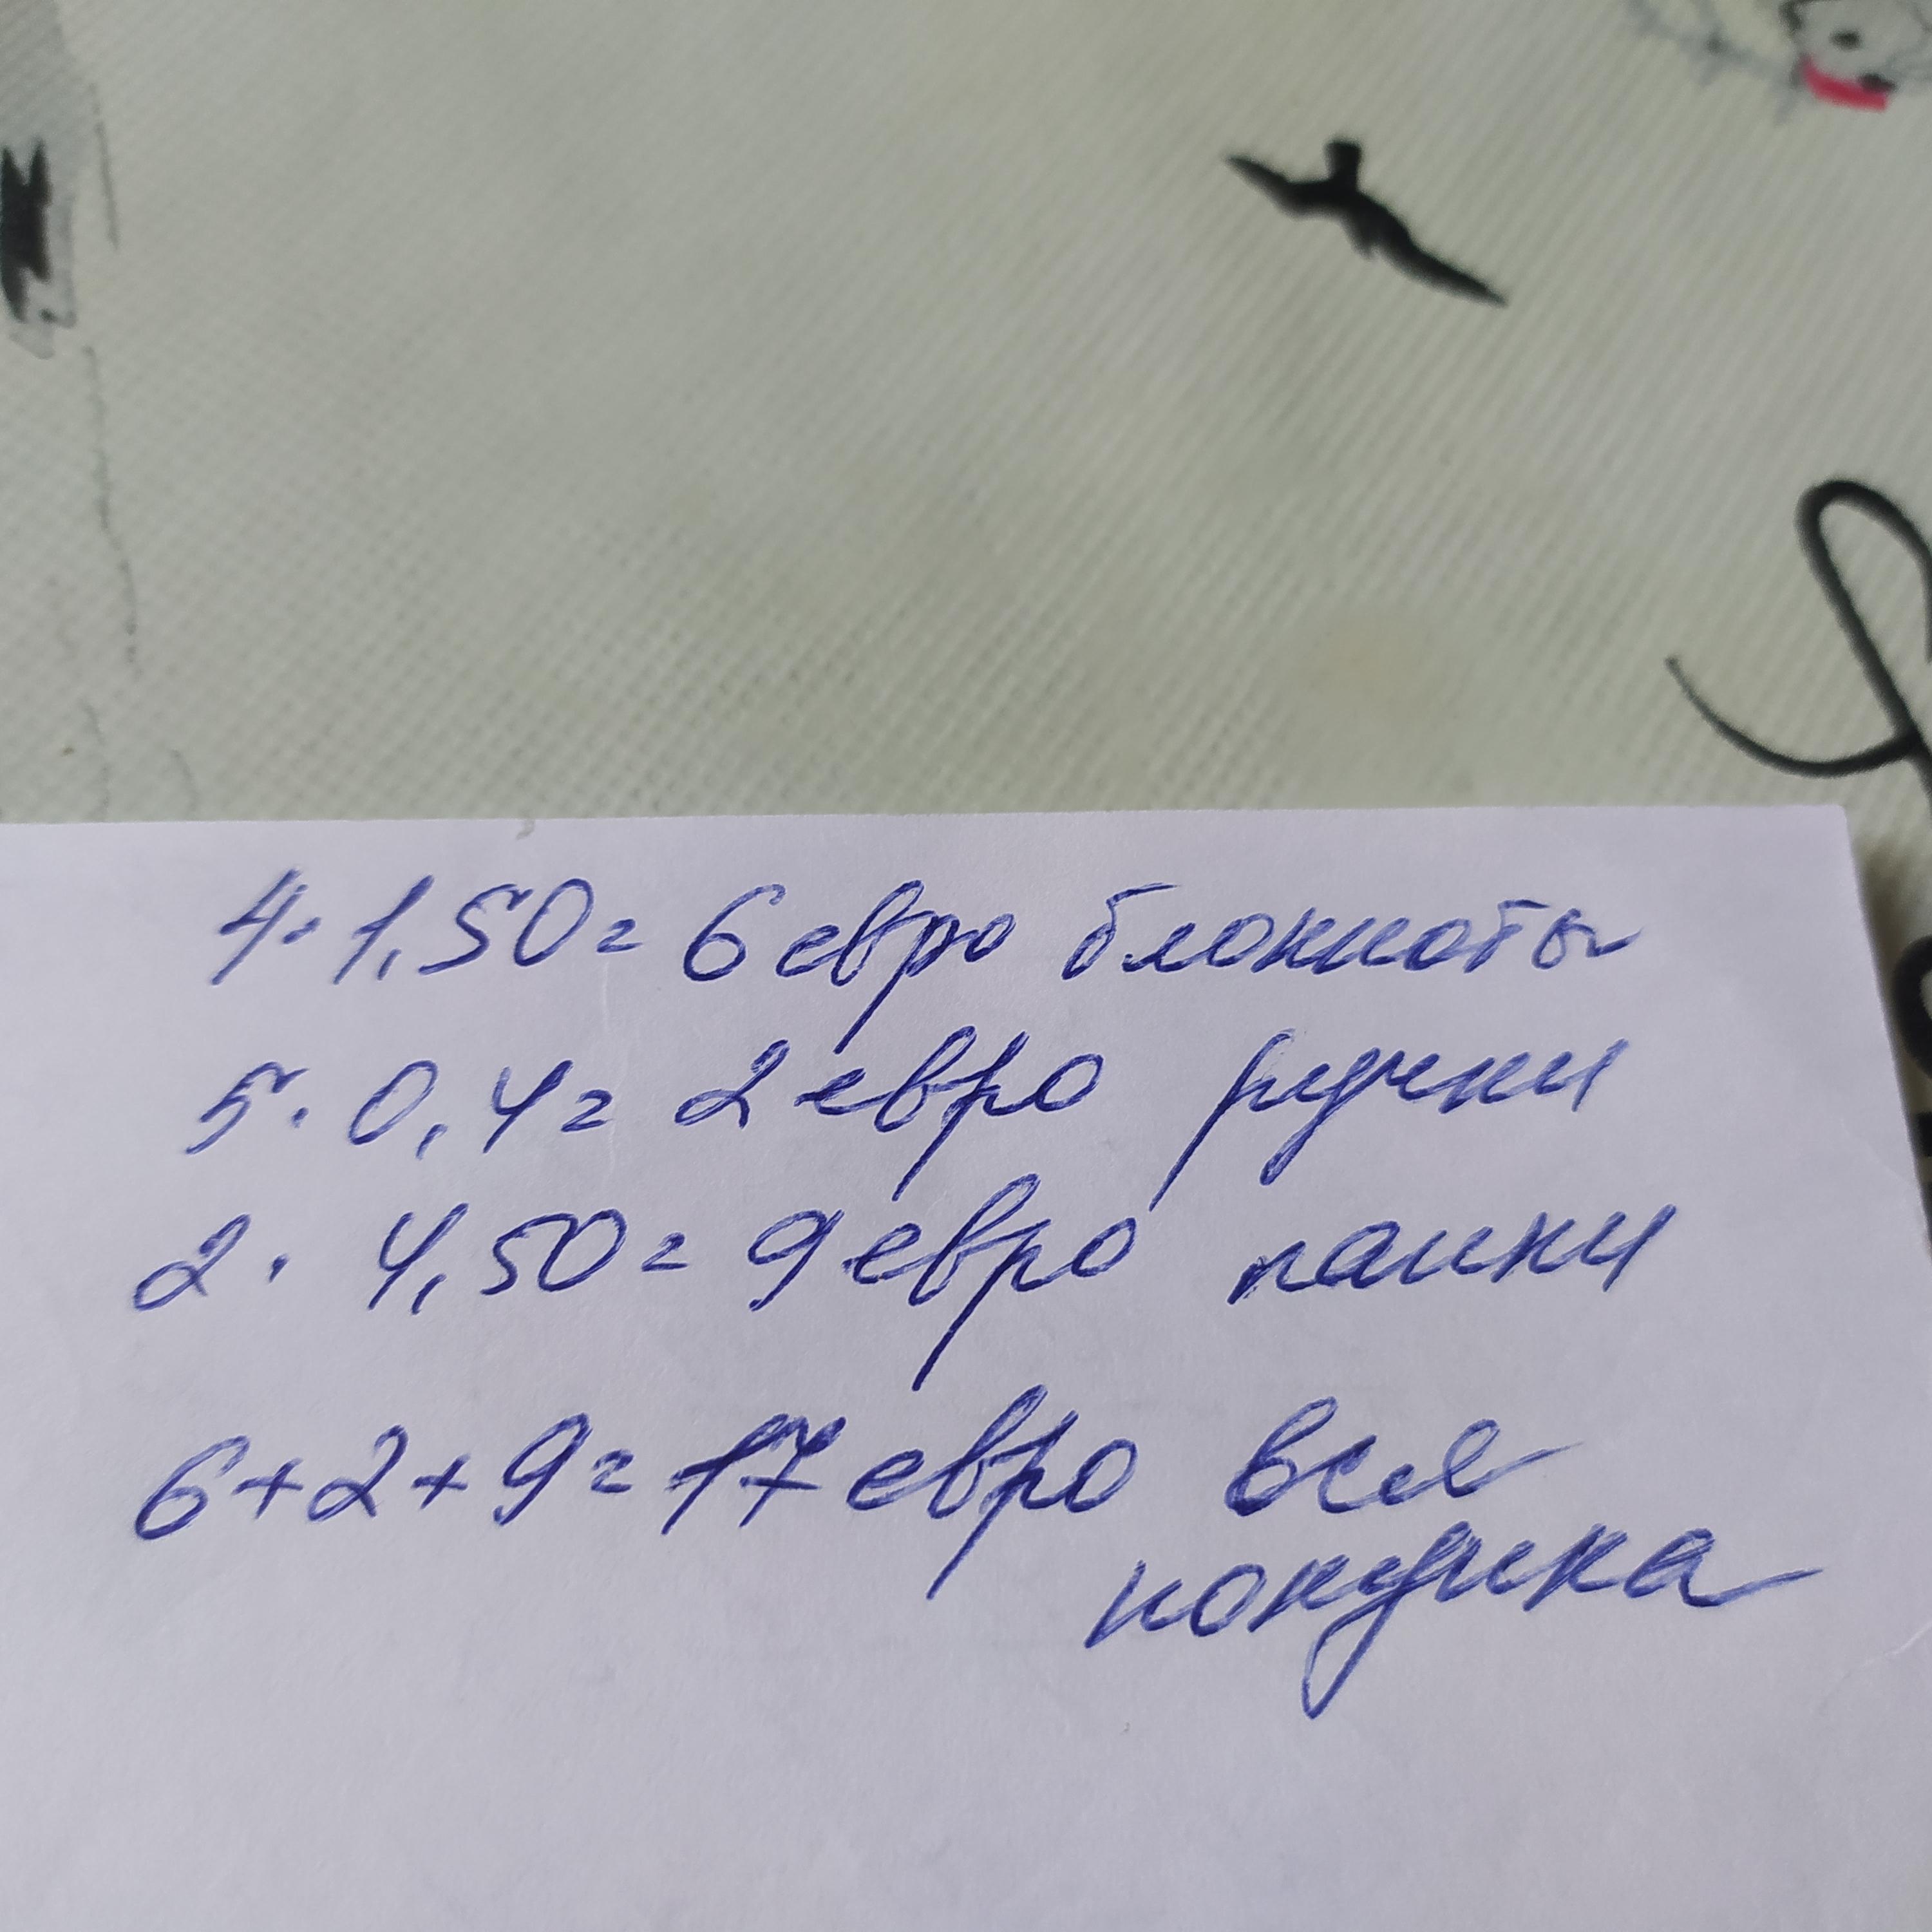 4·1,50=6 евро блокноты
5·0,4=2 евро ручки
2·4,50=9 евро папки
6+2+9=17 евро вся
покупка